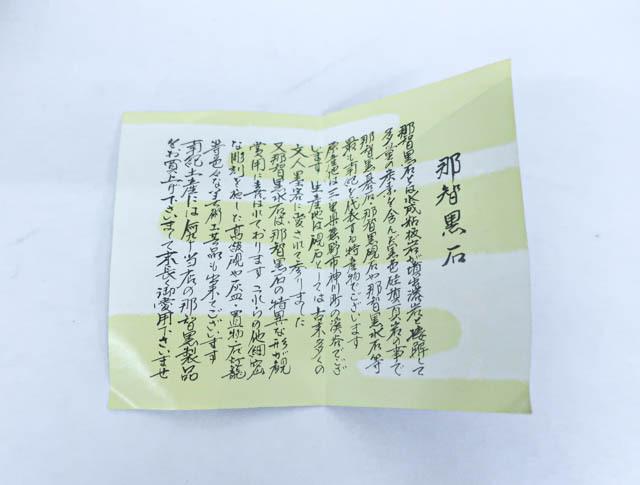 那智黒石
那智黒石とは水成粘板岩が噴出濃岩と接解して
多量の炭素を含んだ黒色硅質頁岩の事で
那智黒碁石・那智黒硯石や那智黒水石等
最も南紀を代表する特産物でございます
原産地は三重県熊野市神川町の渓谷でござ
います 生産地は硯石としては古来多くの
文人墨客に愛されて参りました
又那智黒水石は那智黒石の特異な形が観
賞用に喜ばれております これらの他細密
な彫刻を施した高級硯や灰皿・置物石灯籠
等色々な美術工芸品も出来てございます
南紀土産には何卒当店の那智黒製品
をお買上げ下さいまして末長く御愛用下さいませ